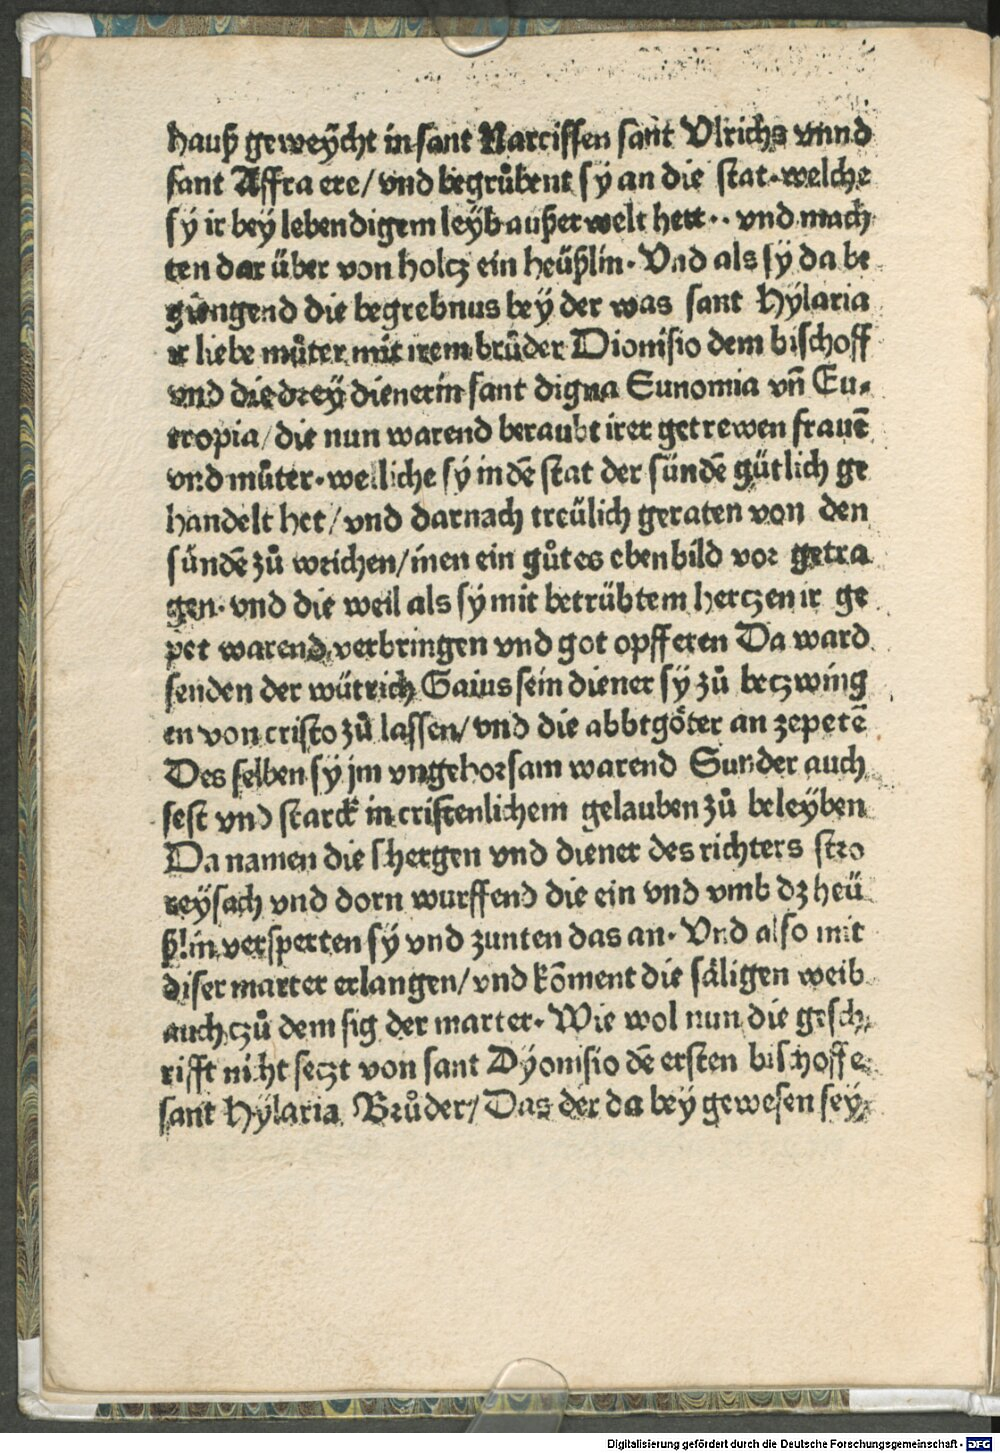 hauß geweÿcht in sant Narcissen sant Vlrichs vnnd
sant Affra ere/ vnd begrůbent sÿ an die stat·welche
sÿ ir beÿ lebendigem leÿb außerwelt hett·· vnd mach
ten dar über von holcz ein heüßlin· Vnd als sÿ da be
giengend die begrebnus beÿ der was sant Hÿlaria
ir liebe můter mit irem brůder Dionisio dem bischoff
vnd die dreÿ dienerin sant digna Eunomia vñ Eu⸗
tropia/ die nun warend beraubt irer getrewen frauē
vnd můter·welliche sÿ in dē stat der sündē gütlich ge
handelt het/ vnd darnach treülich geraten von den
sündē zů weichen/ inen ein gůtes ebenbild vor getra
gen· vnd die weil als sÿ mit betrübtem herczen ir ge
pet warend verbringen vnd got opfferen Da ward
senden der wütrich Gaius sein diener sÿ zů beczwing
en von cristo zů lassen/ vnd die abbtgöter an zepetē
Des selben sÿ jm vngehorsam warend Sunder auch
fest vnd starck in cristenlichem gelauben zů beleÿben
Da namen die shergen vnd diener des richters stro
reÿsach vnd dorn wurffend die ein vnd vmb dz heü
ßlin versperten sÿ vnd zunten das an· Vnd also mit
diser marter erlangen/ vnd kōment die säligen weib
auch czů dem sig der marter· Wie wol nun die gesch
rifft nicht seczt von sant Dÿonisio dē ersten bischoffe
sant Hÿlaria Brůder/ Das der da beÿ gewesen seÿ
Digitalisierung gefördert durch die Deutsche Forschungsgemeinschaft - DFG